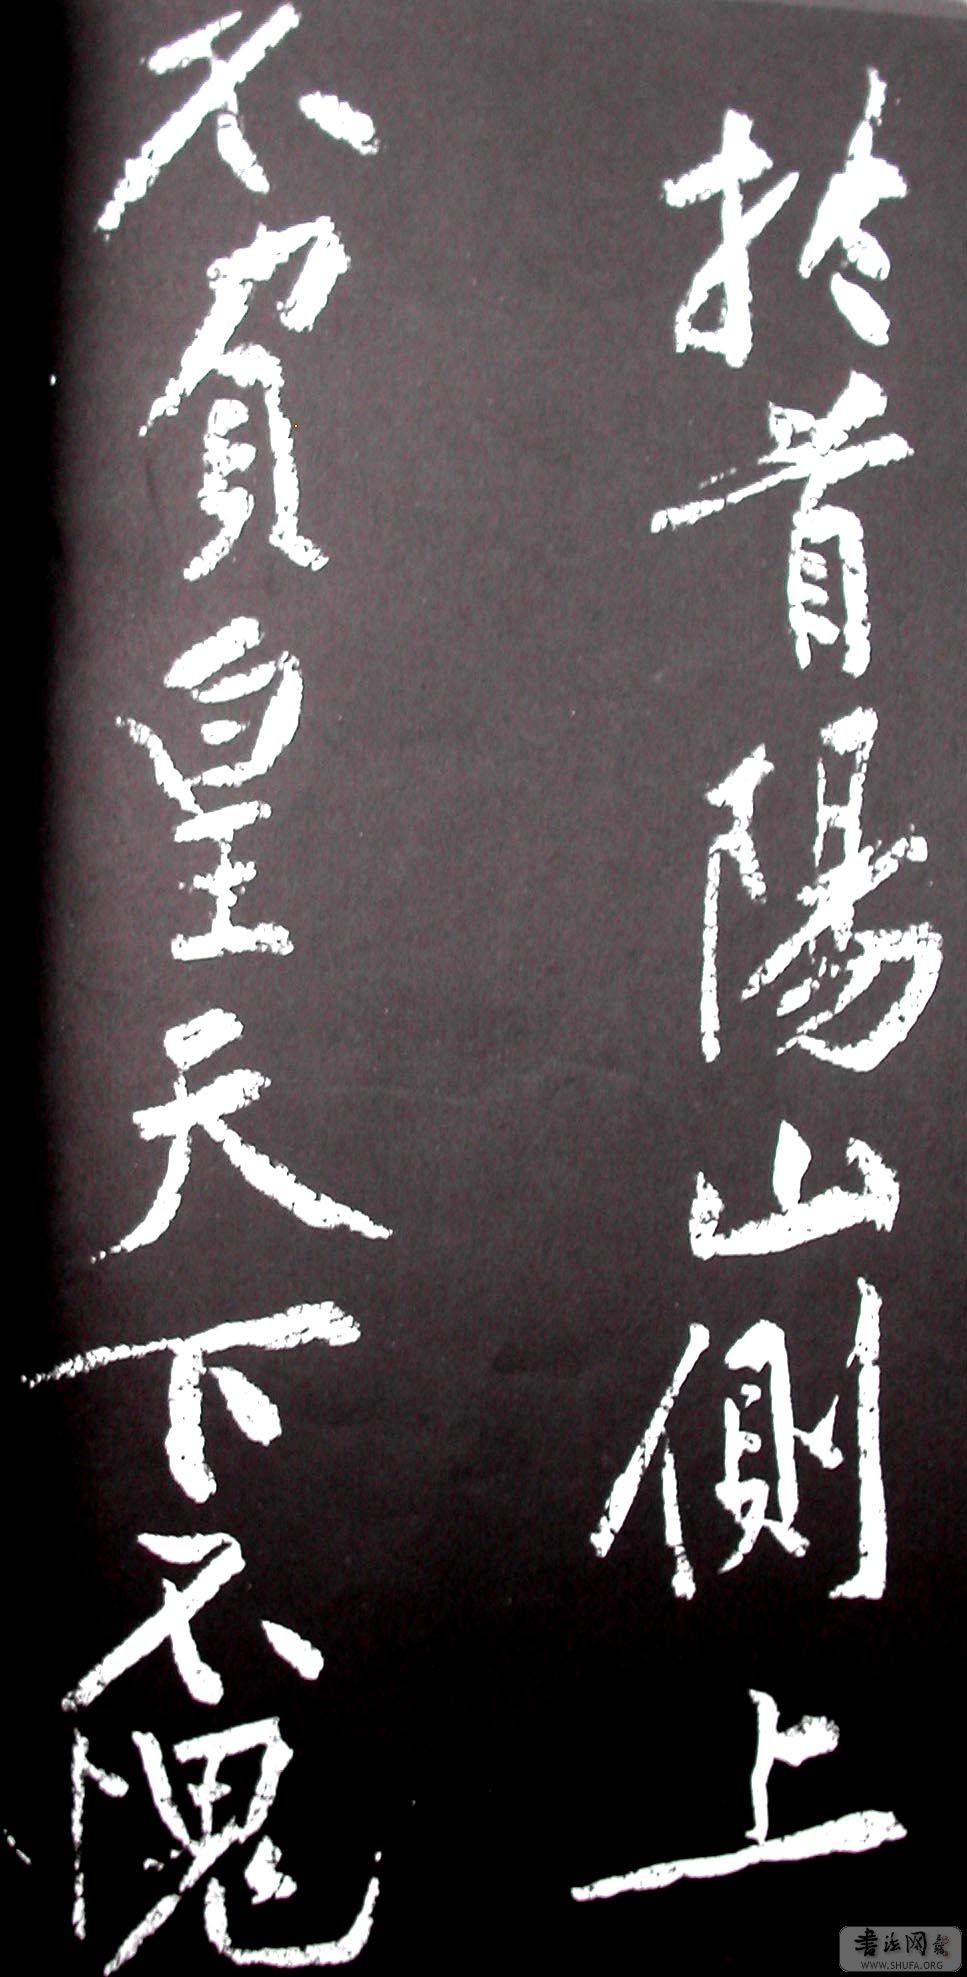 於首陽山側上
不負皇天下不愧
書法网
WWW.SHUFA.ORG